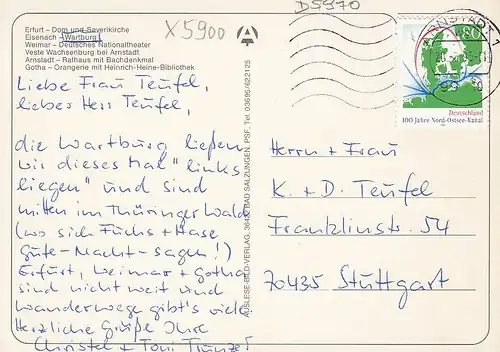 X5900
D5970
Erfurt – Dom und Severikirche
Eisenach – Wartburg
Weimar – Deutsches Nationaltheater
Veste Wachsenburg bei Arnstadt
Arnstadt – Rathaus mit Bachdenkmal
Gotha – Orangerie mit Heinrich-Heine-Bibliothek
Liebe Frau Teufel,
lieber Herr Teufel,
die Wartburg ließen
wir dieses Mal "links
liegen" und sind
mitten im Thüringer Wald
(wo sich Fuchs + Hase
Gute-Nacht-sagen!)
Erfurt, Weimar + Gotha
sind nicht weit und
Wanderwege gibt's viele
Herzliche Grüße Ihre
Christel + Toni
AUSLESE-BILD-VERLAG, 36433 BAD SALZUNGEN, PSF, Tel. 03695/622125
ARNSTADT 1
Deutschland
100 Jahre Nord-Ostsee-Kanal
Herrn + Frau
K. + D. Teufel
Franklinstr. 54
70435 Stuttgart